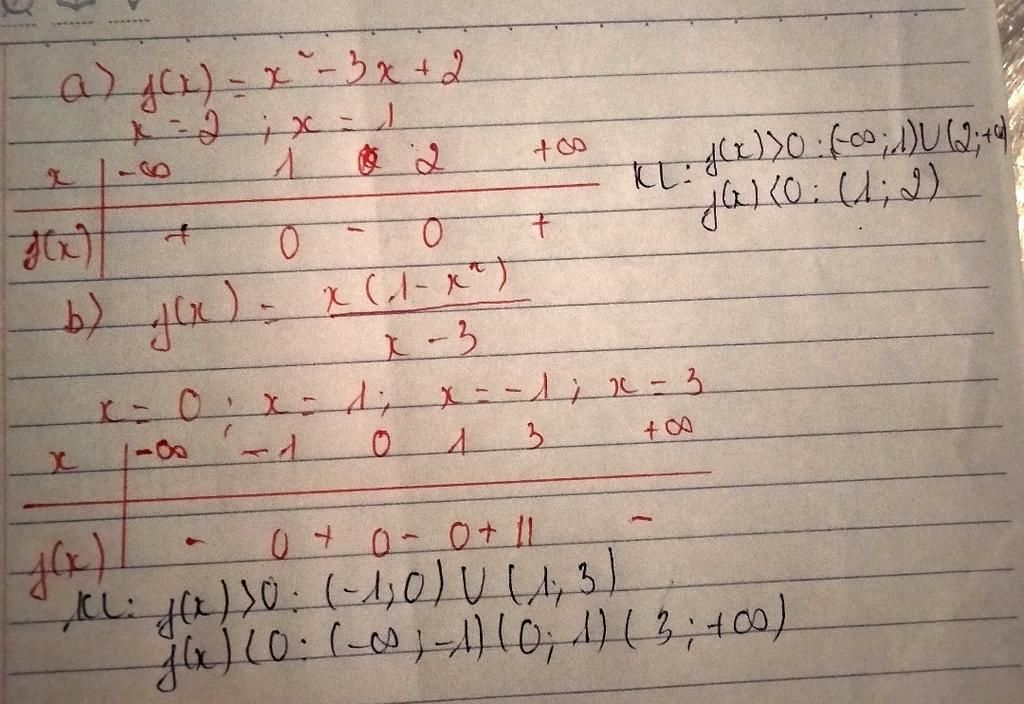 a) f(x) = x² - 3x + 2
x = 2 ; x = 1
x | -∞ 1 2 +∞
f(x) | + 0 - 0 +
KL: f(x) > 0 : (-∞; 1) U (2; +∞)
f(x) < 0 : (1; 2)
b) f(x) = x(1 - x²)
x - 3
x = 0 ; x = 1 ; x = -1 ; x = 3
x | -∞ -1 0 1 3 +∞
f(x) | - 0 + 0 - 0 + || -
KL: f(x) > 0 : (-1; 0) U (1; 3)
f(x) < 0 : (-∞; -1) (0; 1) (3; +∞)